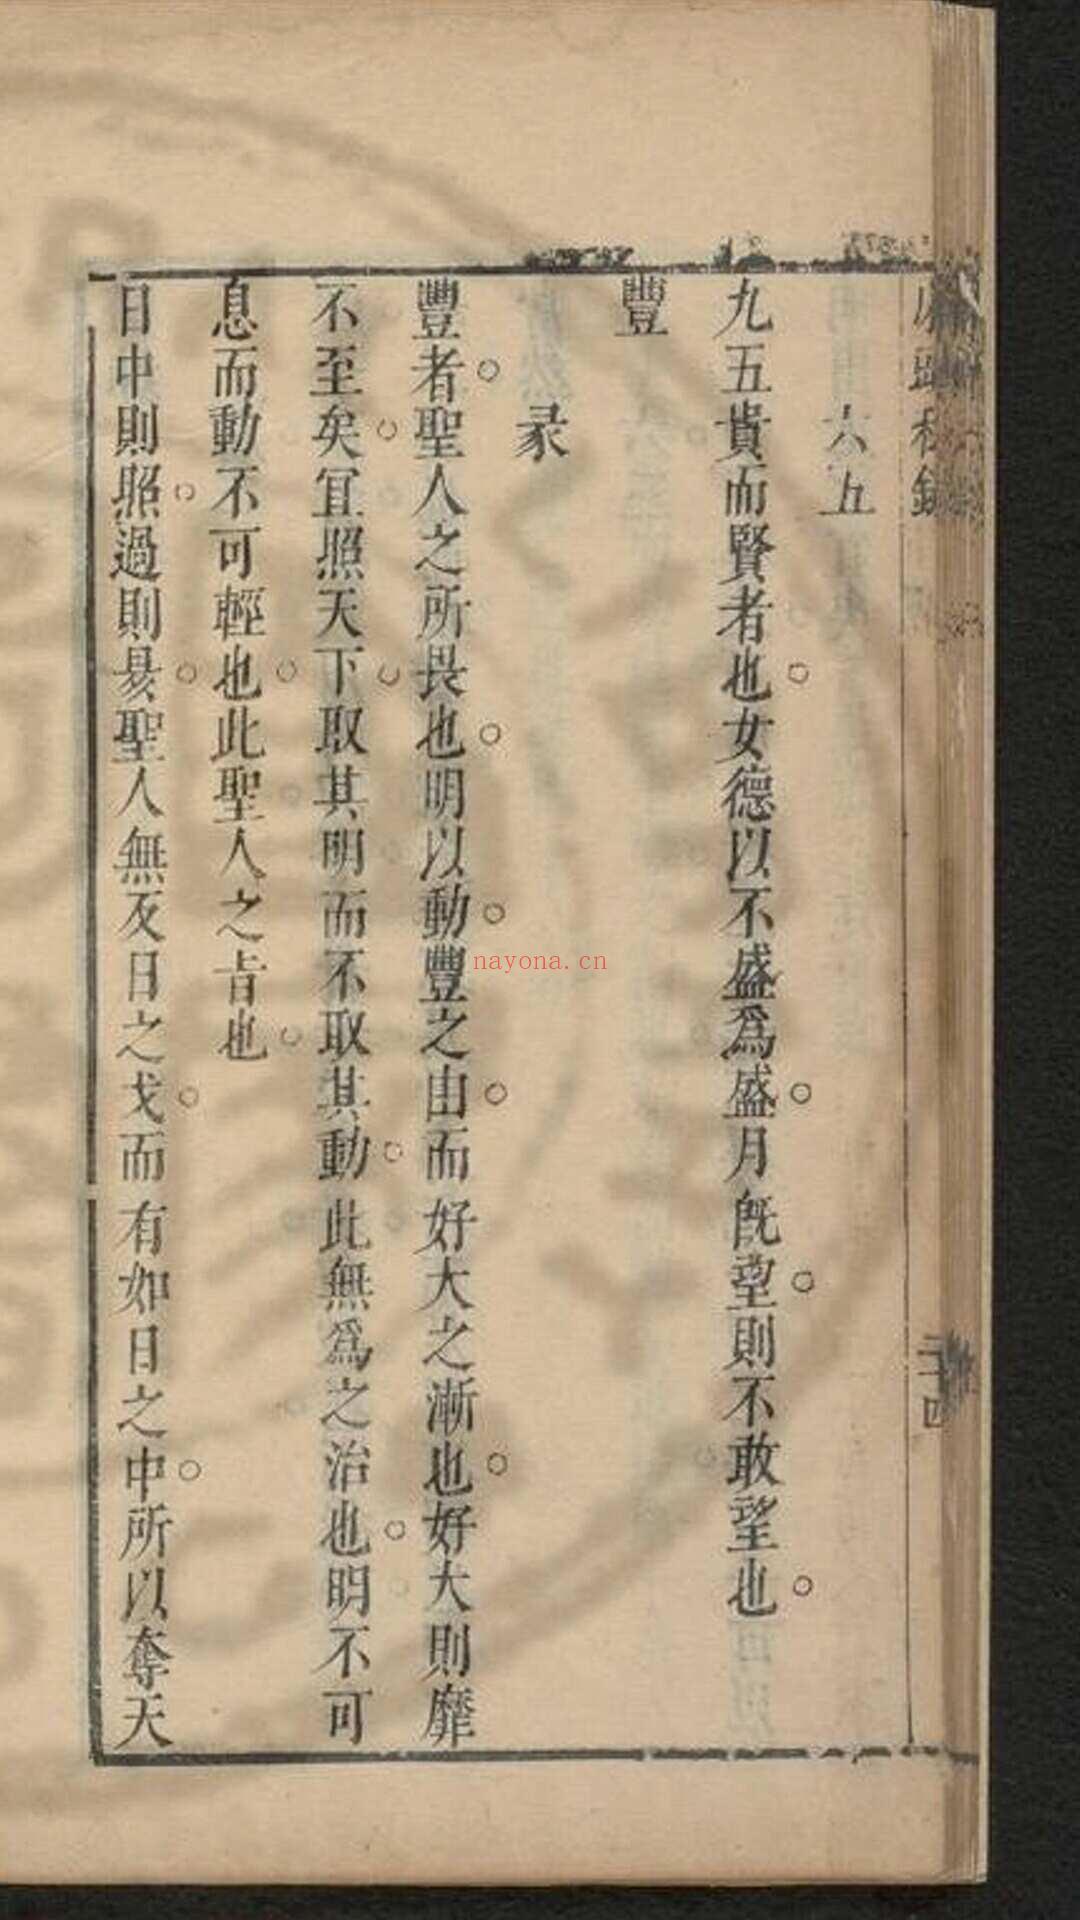 六五
九五貴而賢者也女德以不盛爲盛月旣望則不敢望也
豐
彖
豐者聖人之所畏也明以動豐之由而好大之漸也好大則靡
不至矣冝照天下取其明而不取其動此無爲之治也明不可
息而動不可輕也此聖人之旨也
日中則照過則昃聖人無及日之戈而有如日之中所以奪天
二十四
nayona.cn